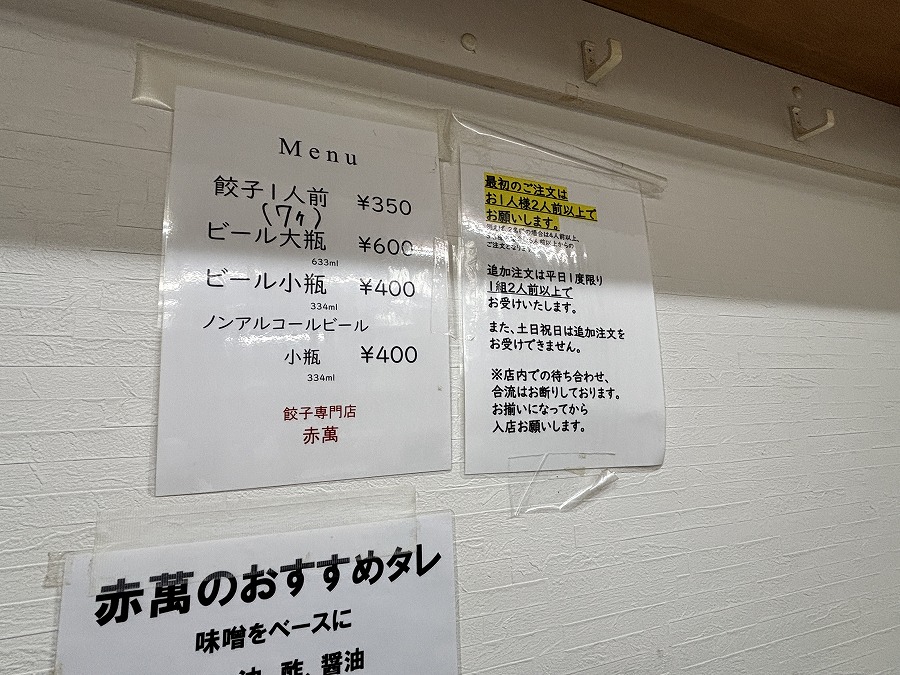 Menu
餃子1人前 ¥350
(7ケ)
ビール大瓶 ¥600
633ml
ビール小瓶 ¥400
334ml
ノンアルコールビール
小瓶 ¥400
334ml
餃子専門店
赤萬
最初のご注文は
お1人様2人前以上で
お願いします。
例えば、2名様の場合は4人前以上、
人前以上からの
ご注文となります
追加注文は平日1度限り
1組2人前以上で
お受けいたします。
また、土日祝日は追加注文を
お受けできません。
※店内での待ち合わせ、
合流はお断りしております。
お揃いになってから
入店お願いします。
赤萬のおすすめタレ
味噌をベースに
油、酢、醤油